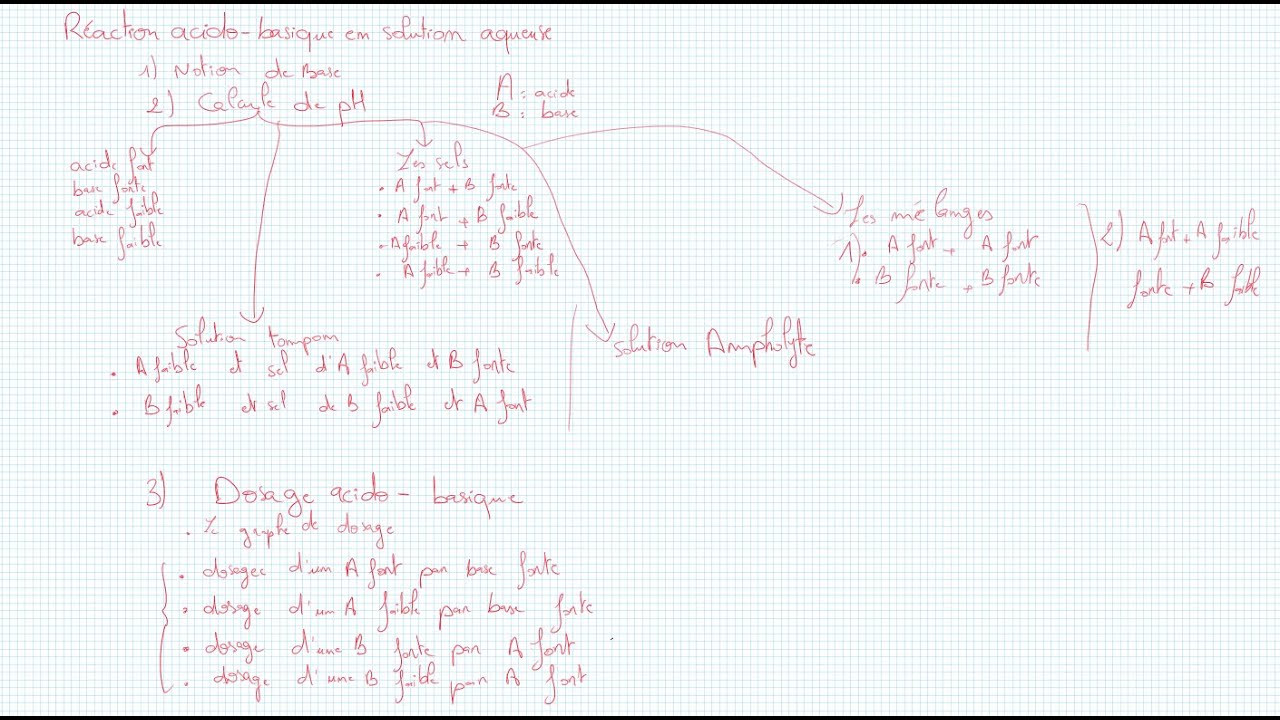 Réaction acido-basique en solution aqueuse
1) Notion de Base
2) Calcule de pH
A : acide
B : base
acide fort
base forte
acide faible
base faible
Les sels
• A fort + B forte
• A fort + B faible
• A faible + B forte
• A faible + B faible
Les mélanges
1) • A fort + A fort
• B forte + B forte
2) A fort + A faible
forte + B faible
Solution tampom
• A faible et sel d'A faible et B forte
• B faible et sel de B faible et A fort
solution Ampholyte
3) Dosage acido-basique
• Le graphe de dosage
• dosagec d'un A fort par base forte
• dosage d'un A faible par base forte
• dosage d'une B forte par A fort
• dosage d'une B faible par A fort